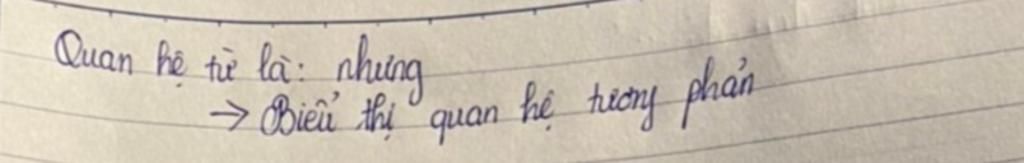 Quan hệ từ là: nhưng
→ Biểu thị quan hệ tương phản